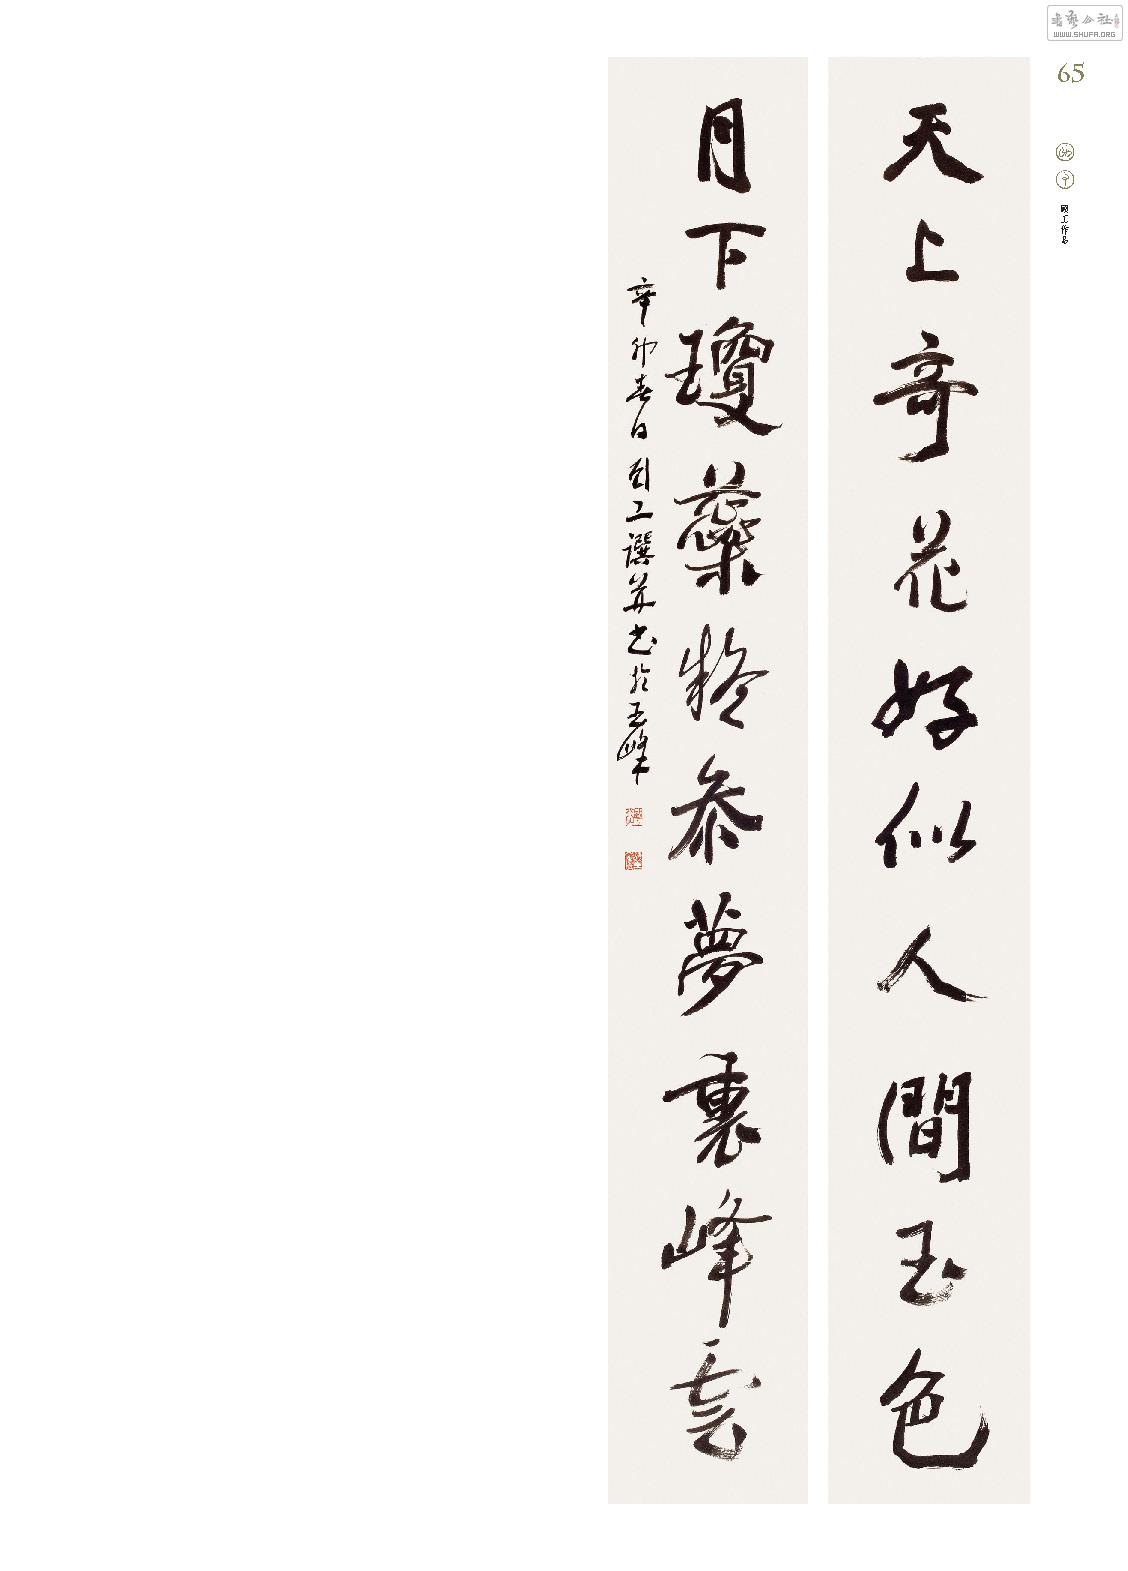 書藝公社
WWW.SHUFA.ORG
65
國工作品
天上奇花好似人間玉色
月下瓊蘂參夢裏峰雲
辛卯春日國工譔并書於玉峰